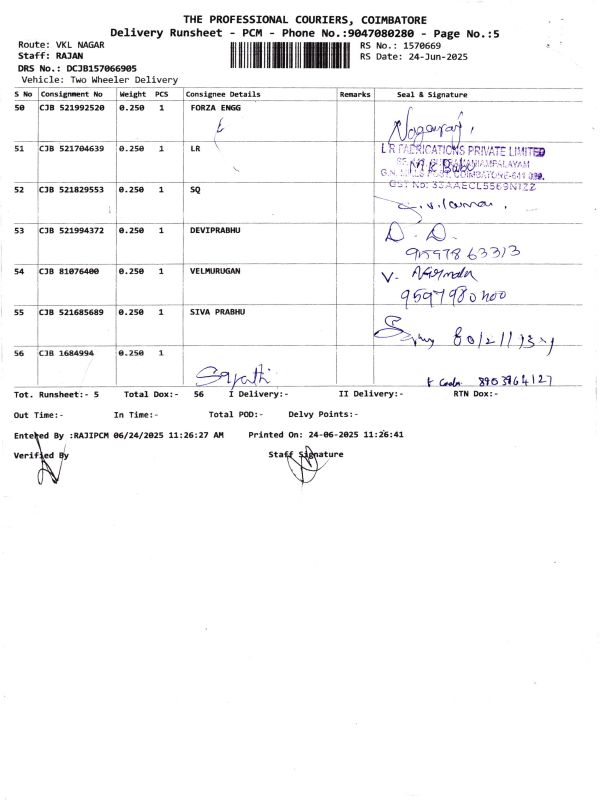 THE PROFESSIONAL COURIERS, COIMBATORE
Delivery Runsheet - PCM - Phone No.:9047080280 - Page No.:5
Route: VKL NAGAR
RS No.: 1570669
Staff: RAJAN
RS Date: 24-Jun-2025
DRS No.: DCJB157066905
Vehicle: Two Wheeler Delivery
S No Consignment No Weight PCS Consignee Details Remarks Seal & Signature
50 CJB 521992520 0.250 1 FORZA ENGG Nagaraj
51 CJB 521704639 0.250 1 LR
L R FABRICATIONS PRIVATE LIMITED
G.N. MILLS POST, COIMBATORE-641 029.
GST No: 33AAECL5569N1ZZ
52 CJB 521829553 0.250 1 SQ
53 CJB 521994372 0.250 1 DEVIPRABHU D. D.
9597863313
54 CJB 81076400 0.250 1 VELMURUGAN V.
55 CJB 521685689 0.250 1 SIVA PRABHU
56 CJB 1684994 0.250 1
8903964127
Tot. Runsheet:- 5 Total Dox:- 56 I Delivery:- II Delivery:- RTN Dox:-
Out Time:- In Time:- Total POD:- Delvy Points:-
Entered By :RAJIPCM 06/24/2025 11:26:27 AM Printed On: 24-06-2025 11:26:41
Verified By Staff Signature